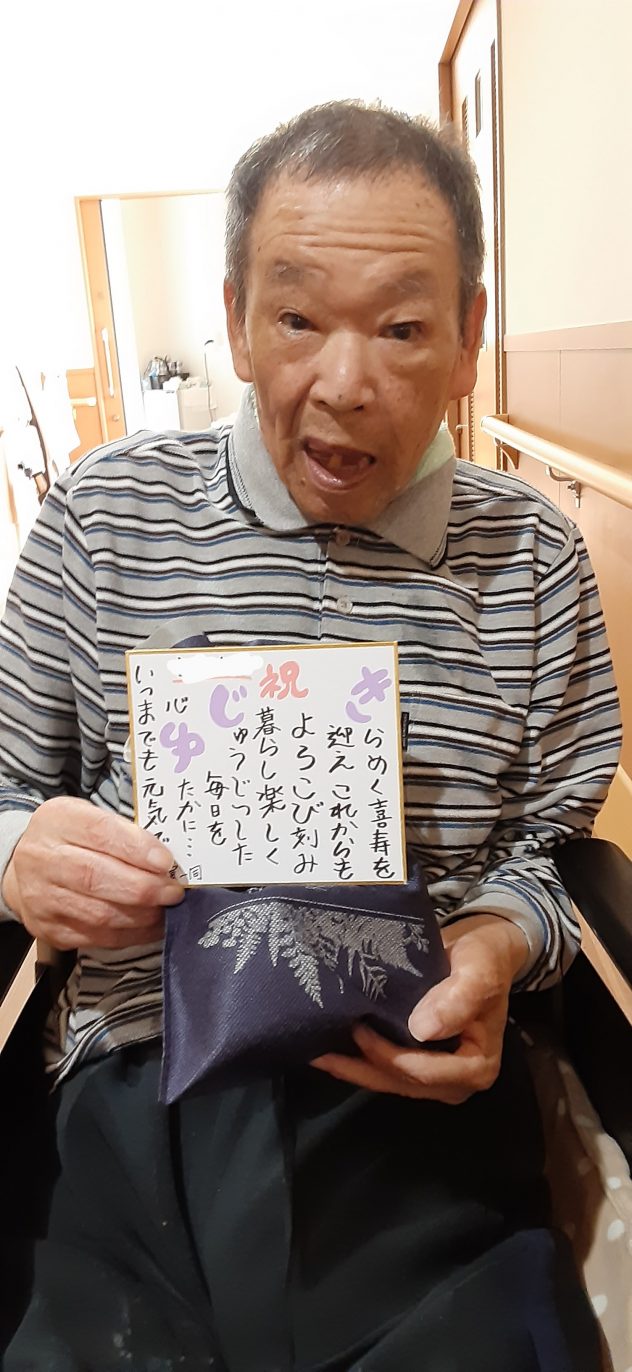 祝
きらめく喜寿を
迎えこれからも
よろこび刻み
暮らし楽しく
じゅうじつした
毎日を
心ゆたかに…
いつまでも元気で
一同